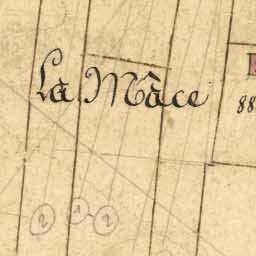 La Mâce
88
2 1 2